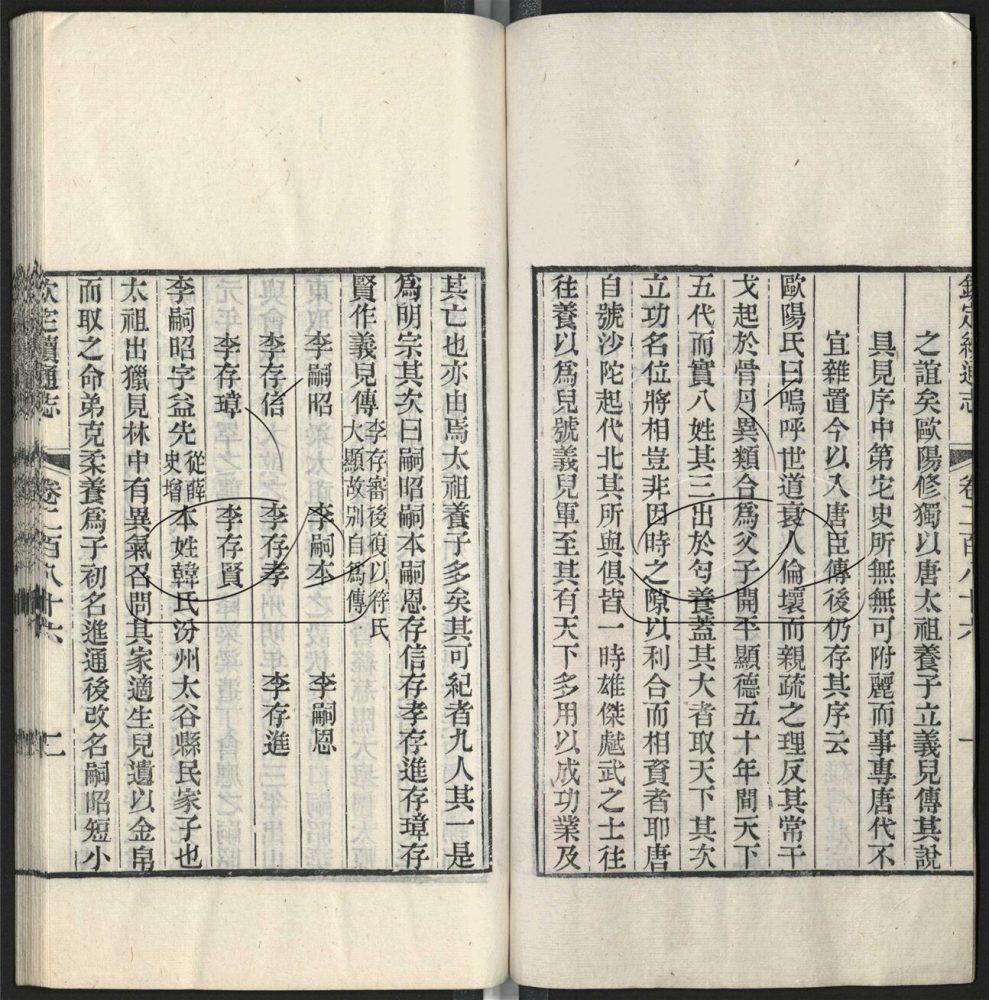 欽定續通志 卷二百八十六 一
之誼矣歐陽修獨以唐太祖養子立義兒傳其說
具見序中第宅史所無無可附麗而事專唐代不
宜雜置今以入唐臣傳後仍存其序云
歐陽氏曰嗚呼世道衰人倫壞而親疏之理反其常干
戈起於骨肉異類合為父子開平顯德五十年間天下
五代而實八姓其三出於匄養蓋其大者取天下其次
立功名位將相豈非因時之隙以利合而相資者耶唐
自號沙陀起代北其所與俱皆一時雄傑虣武之士往
往養以為兒號義兒軍至其有天下多用以成功業及
其亡也亦由焉太祖養子多矣其可紀者九人其一是
為明宗其次曰嗣昭嗣本嗣恩存信存孝存進存璋存
賢作義兒傳李存審後復以符氏大顯故別自為傳
李嗣昭 李嗣本 李嗣恩
李存信 李存孝 李存進
李存璋 李存賢
李嗣昭字益先從薛史增本姓韓氏汾州太谷縣民家子也
太祖出獵見林中有異氣召問其家適生兒遺以金帛
而取之命弟克柔養為子初名進通後改名嗣昭短小
欽定續通志 卷二百八十六 二